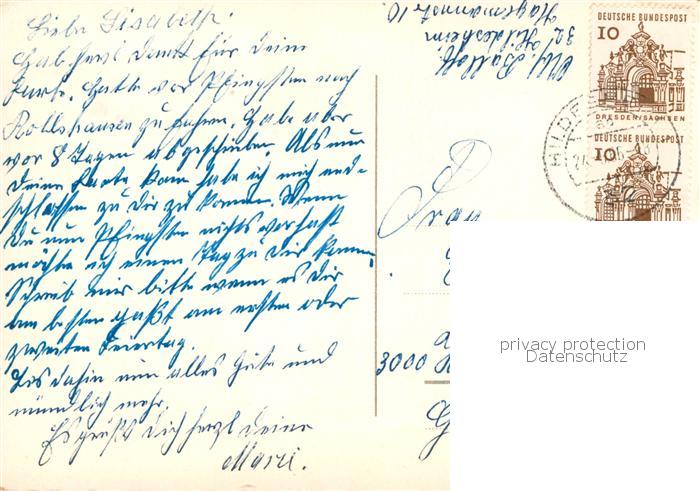 Liebe Lisabeth!
Hab herzl Dank für Deine
Karte. Hatte vor Pfingsten nach
Rollshausen zu fahren. Habe aber
vor 8 Tagen abgeschrieben. Als nun
Deine Karte kam habe ich mich ent-
schlossen zu Dir zu kommen. Wenn
Du nun Pfingsten nichts vorhast
möchte ich einen Tag zu Dir kommen.
Schreib mir bitte wenn es Dir
am besten paßt am ersten oder
zweiten Feiertag.
Bis dahin nun alles Gute und
mündlich mehr.
Es grüßt Dich herzl Deine
Marri.
32 Hildesheim
Hagemannstr 10
DEUTSCHE BUNDESPOST
10
DRESDEN/SACHSEN
10
HILDESHEIM
Frau
3000
privacy protection
Datenschutz